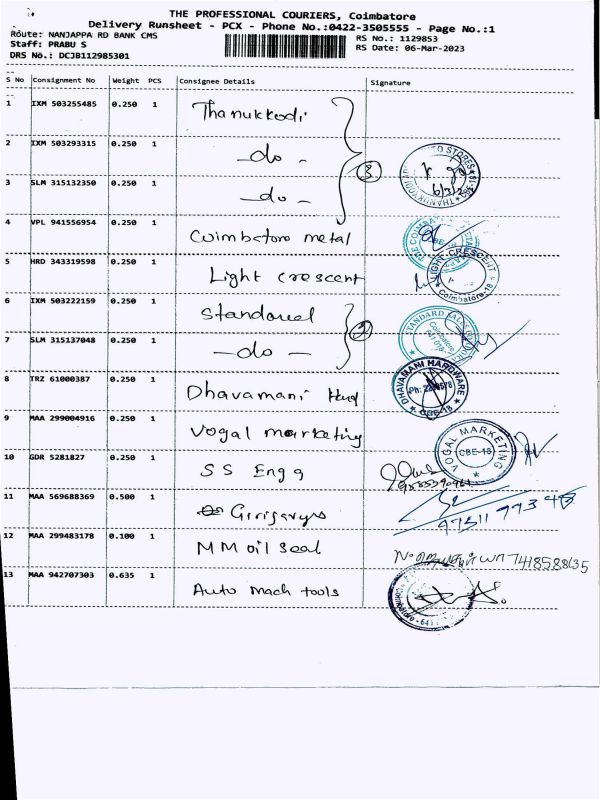 THE PROFESSIONAL COURIERS, Coimbatore
Delivery Runsheet - PCX - Phone No.:0422-3505555 - Page No.:1
Route: NANJAPPA RD BANK CMS
RS No.: 1129853
Staff: PRABU S
RS Date: 06-Mar-2023
DRS No.: DCJB112985301
S No Consignment No Weight PCS Consignee Details Signature
1 IXM 503255485 0.250 1 Thanukkodi
2 IXM 503293315 0.250 1 -do-
3 SLM 315132350 0.250 1 -do-
3
4 VPL 941556954 0.250 1 Coimbatore metal
5 HRD 343319598 0.250 1 Light crescent
LIGHT CRESCENT
Coimbatore-18
6 IXM 503222159 0.250 1 Standared
7 SLM 315137048 0.250 1 -do-
2
STANDARD
Coimbatore
641 018
8 TRZ 61000387 0.250 1 Dhavamani Hard
DHAVAMANI HARDWARE
CBE-18
9 MAA 299004916 0.250 1 Vogal marketing
VOGAL MARKETING
CBE-18
10 GDR 5281827 0.250 1 SS Engg
11 MAA 569688369 0.500 1
12 MAA 299483178 0.100 1 MM oil seal 7418588635
13 MAA 942707303 0.635 1 Auto Mach tools